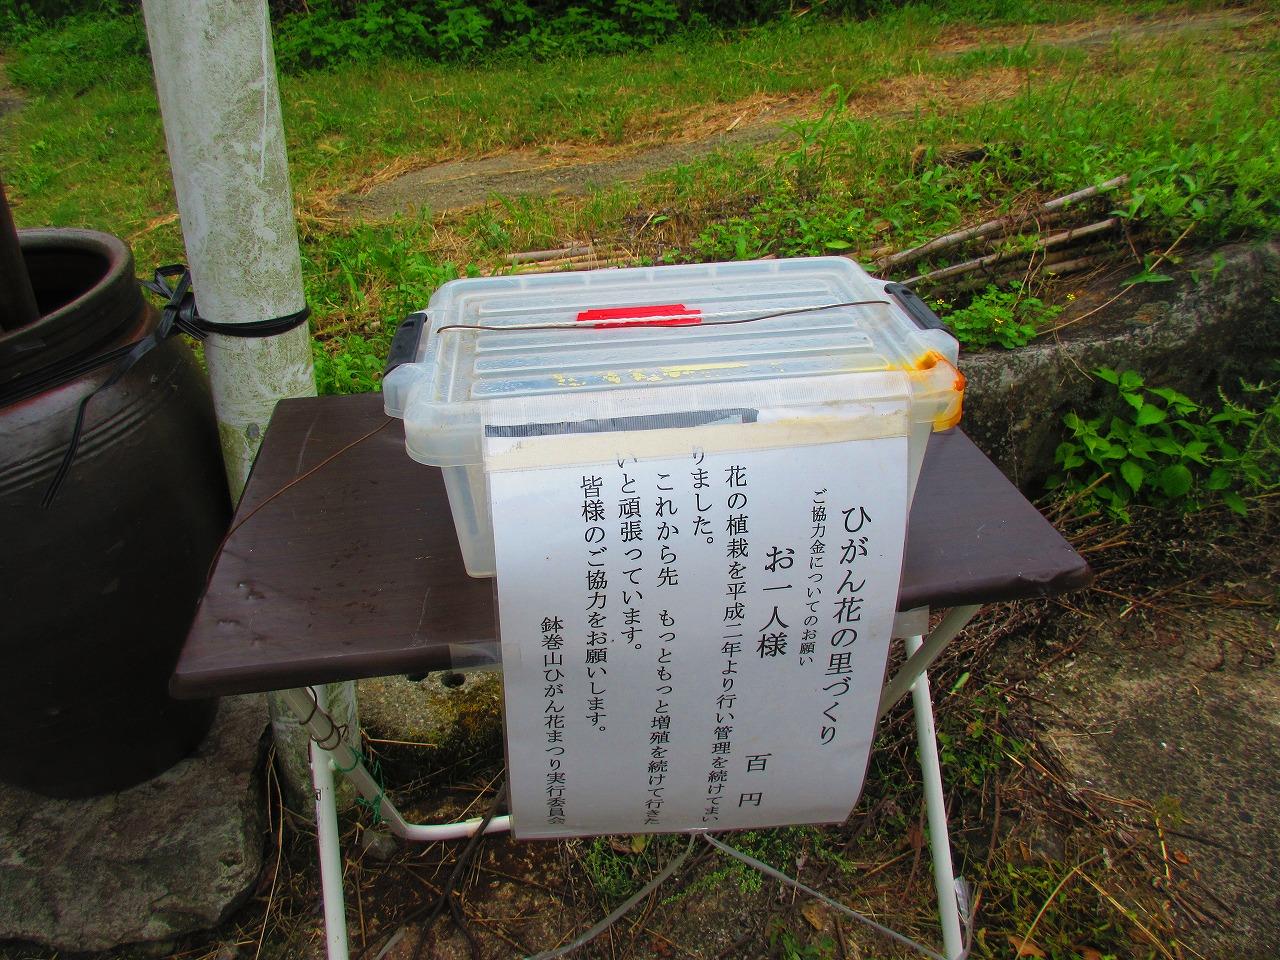 ひがん花の里づくり
ご協力金についてのお願い
お一人様 百円
花の植栽を平成二年より行い管理を続けてまい
りました。
これから先 もっともっと増殖を続けて行きた
いと頑張っています。
皆様のご協力をお願いします。
鉢巻山ひがん花まつり実行委員会